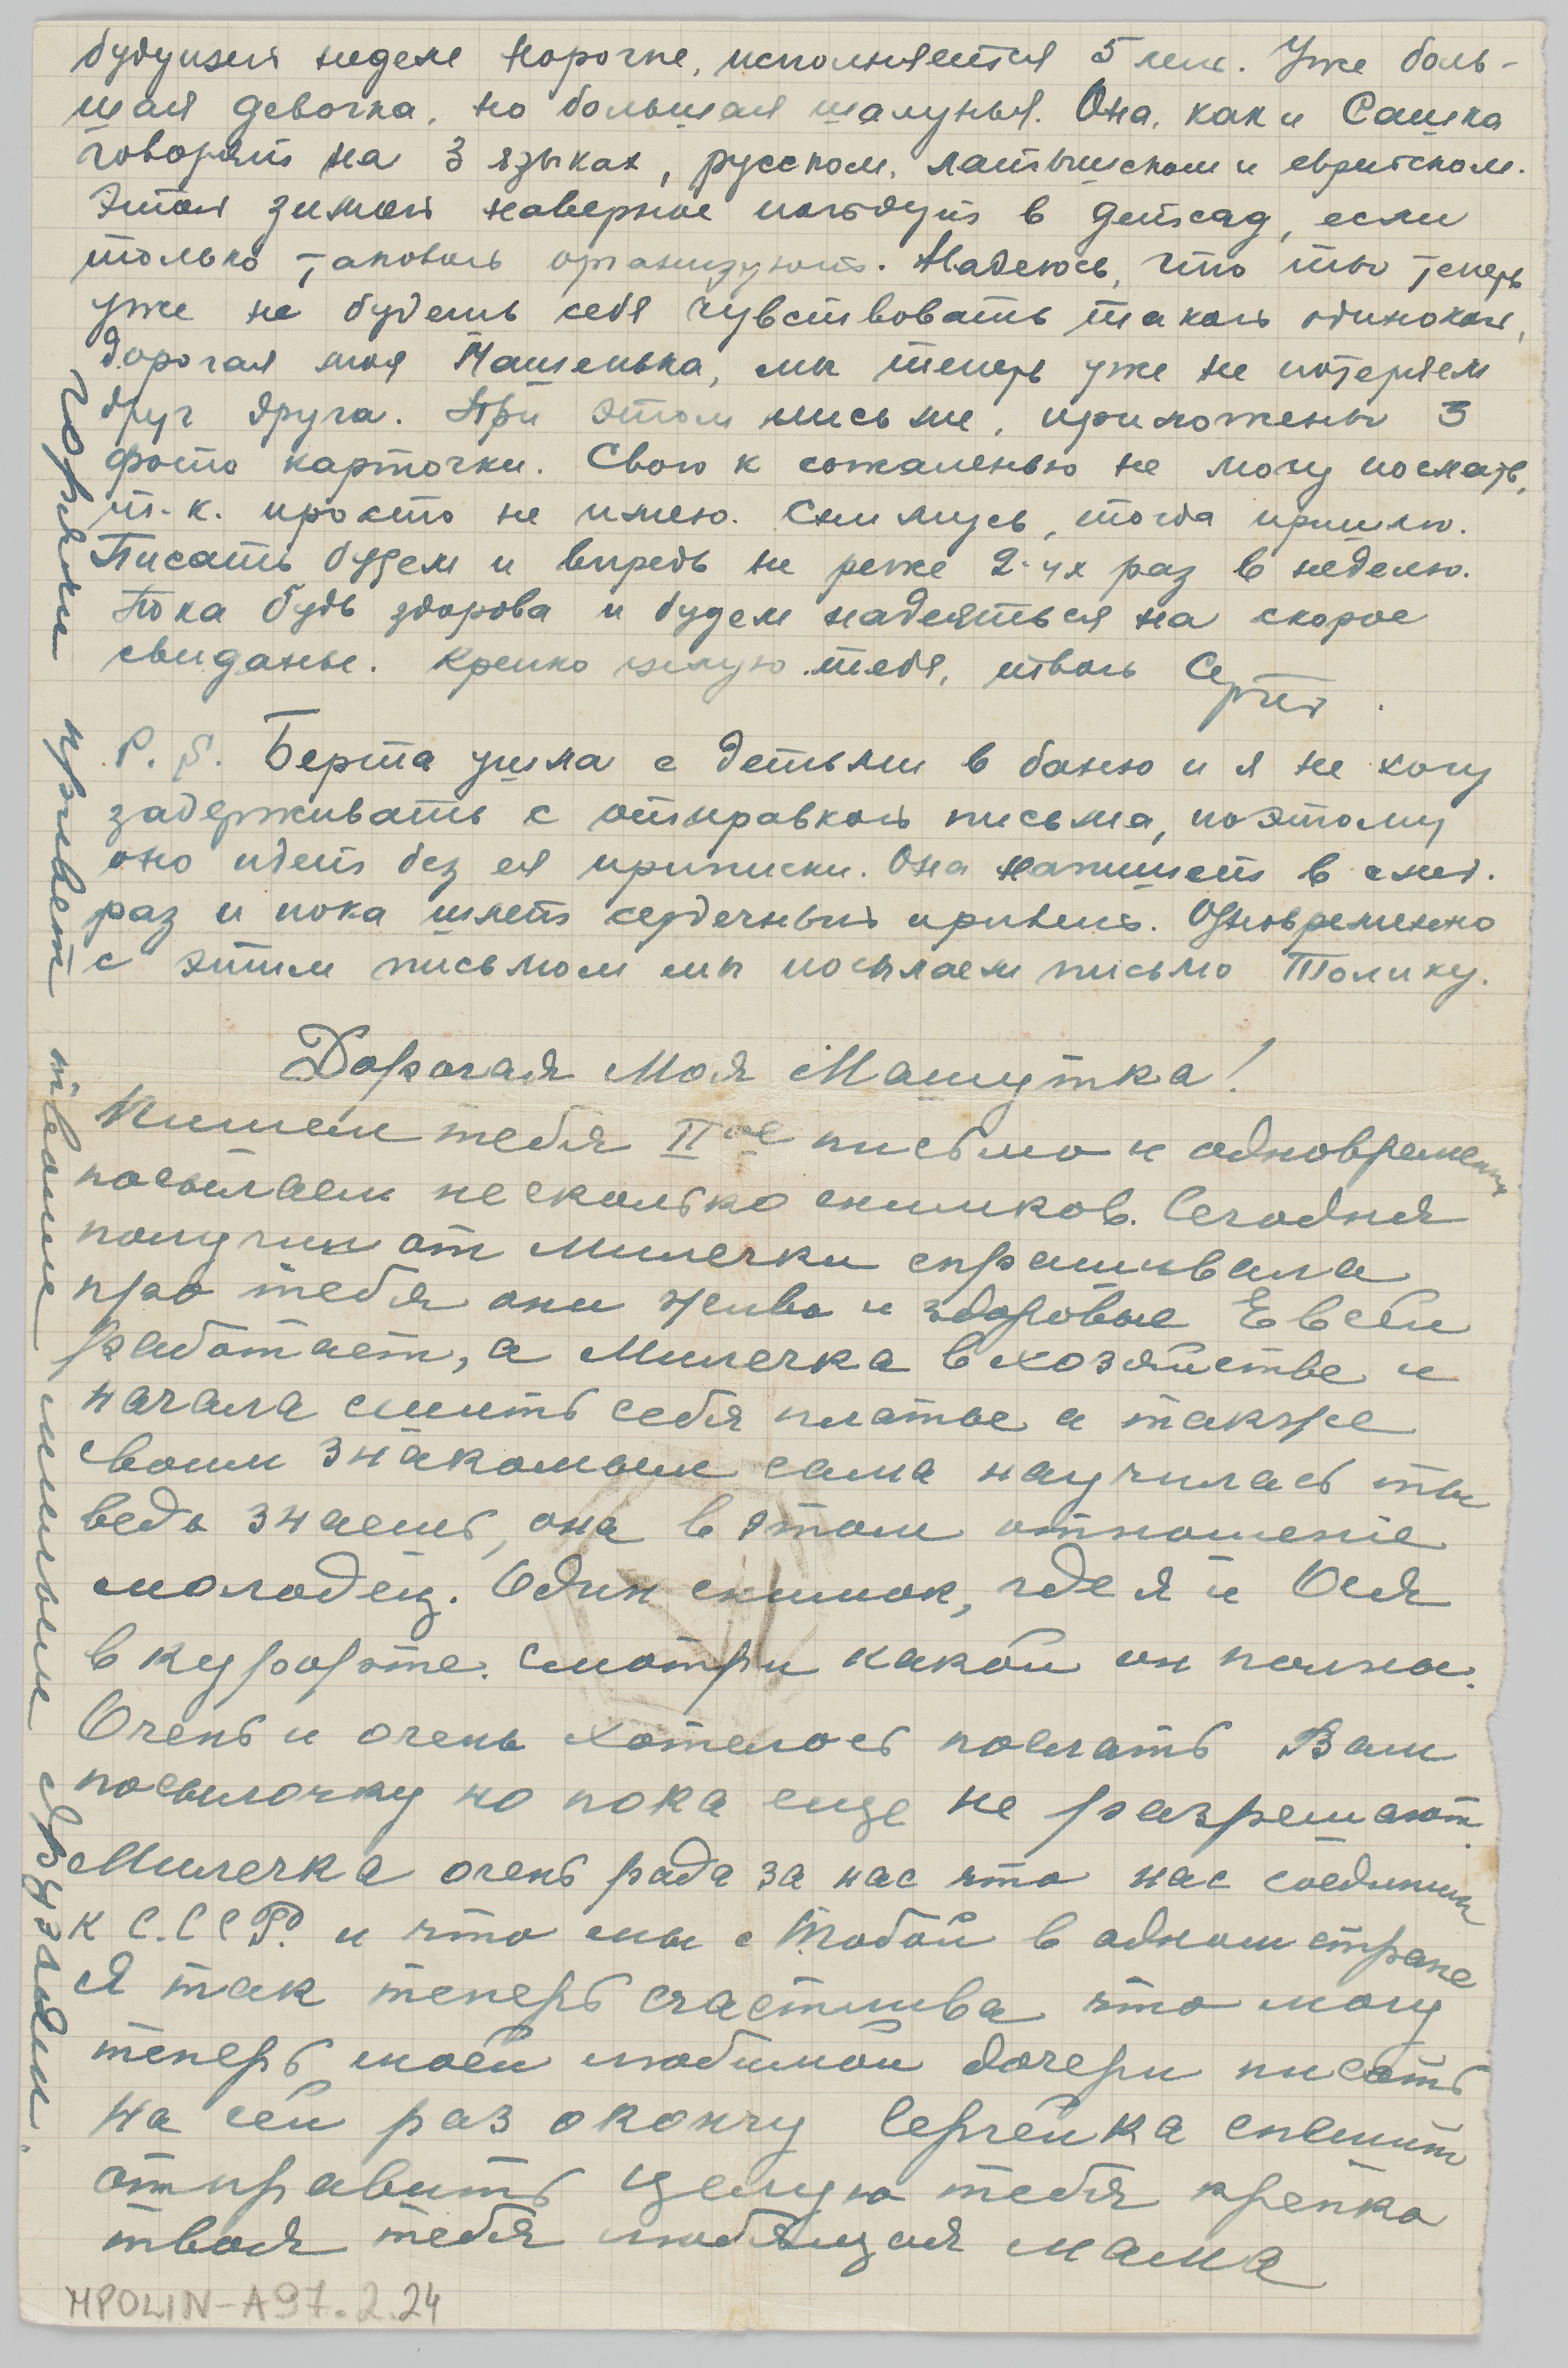 будущей неделе Норочке, исполняется 5 лет. Уже боль-
шая девочка, но большая шалунья. Она, как и Сашка
говорят на 3 языках, русском, латышском и еврейском.
Этой зимой наверное пойдут в детсад, если
только таковой организуют. Надеюсь, что ты теперь
уже не будешь себя чувствовать такой одинокой,
дорогая моя Машенька, мы теперь уже не потеряем
друг друга. При этом письме, приложены 3
фото карточки. Свою к сожаленью не могу послать,
т.к. просто не имею. Снимусь, тогда пришлю.
Писать будем и впредь не реже 2-ух раз в неделю.
Пока будь здорова и будем надеяться на скорое
свиданье. Крепко целую тебя, твой Сергей.
P.S. Берта ушла с детьми в баню и я не хочу
задерживать с отправкой письма, поэтому
оно идет без ея приписки. Она напишет в след.
раз и пока шлет сердечный привет. Одновременно
с этим письмом мы посылаем письмо Толику.
Дорогая Моя Машутка!
Пишем тебя II ое письмо и одновременно
посылаем несколько снимков. Сегодня
получили от Милечки спрашивала
про тебя они живы и здоровые Евсей
работает, а Милечка в хозяйстве и
начала сшить себя платье а также
своим знакомым сама научилась ты
ведь знаешь, она в этом отношение
молодец. Один снимок, где я и Ося
в курорте. Смотри какой он полный.
Очень и очень хотелось послать Вам
посылочку но пока еще не разрешают.
Милечка очень рада за нас что нас соединили
к С.С.С.Р. и что мы с Тобой в одном стране
Я так теперь счастлива что могу
теперь моей любимой дочери писать
На сей раз окончу Сергейка спешит
отправить целую тебя крепко
твоя тебя любящая мама
Горячий привет твоим милым друзьям.
MPOLIN-A97.2.24